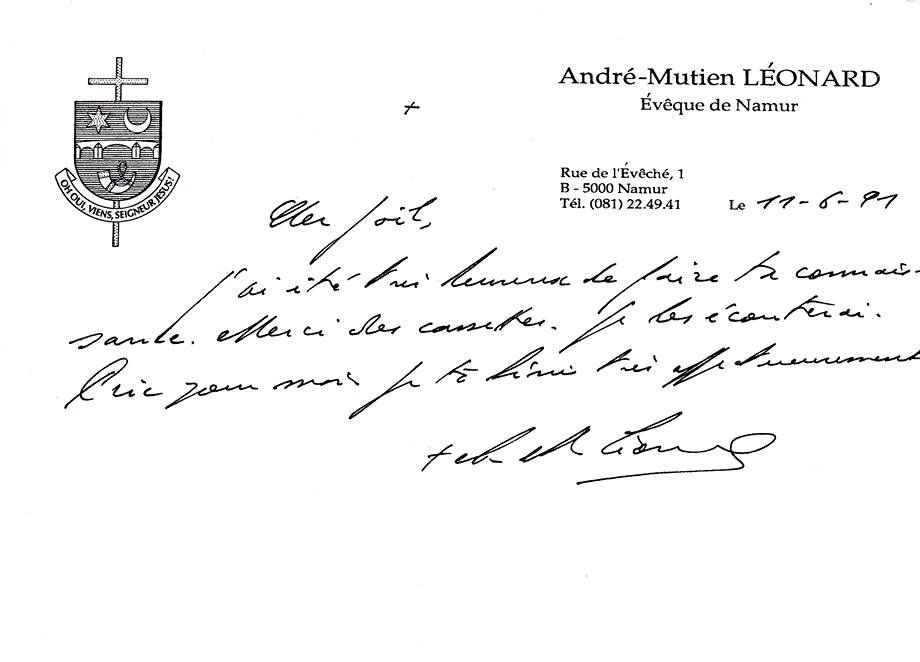 André-Mutien LÉONARD
Évêque de Namur
OH OUI, VIENS, SEIGNEUR JESUS!
Rue de l'Évêché, 1
B - 5000 Namur
Tél. (081) 22.49.41
Le 11-6-91
+
Cher Joël,
J'ai été très heureux de faire ta connais-
sance. Merci des cassettes. Je les écouterai.
Prie pour moi. Je te bénis très affectueusement
+ A. M. Léonard